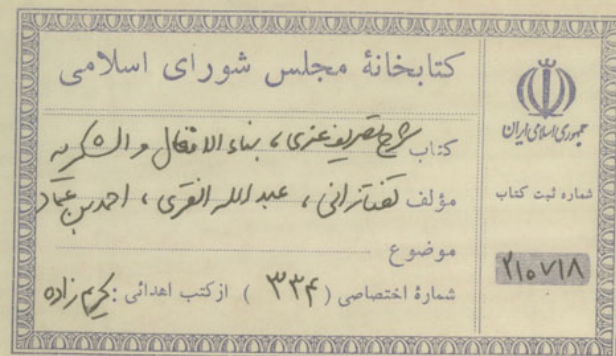 کتابخانهٔ مجلس شورای اسلامی
کتاب شرح تصریف عزی، بناء الافعال و الشکریه
مؤلف تفتازانی، عبدالله الفری، احمد بن عماد
موضوع
شمارهٔ اختصاصی ( ۳۳۴ ) از کتب اهدائی: کریم زاده
جمهوری اسلامی ایران
شماره ثبت کتاب
۲۱۰۷۱۸